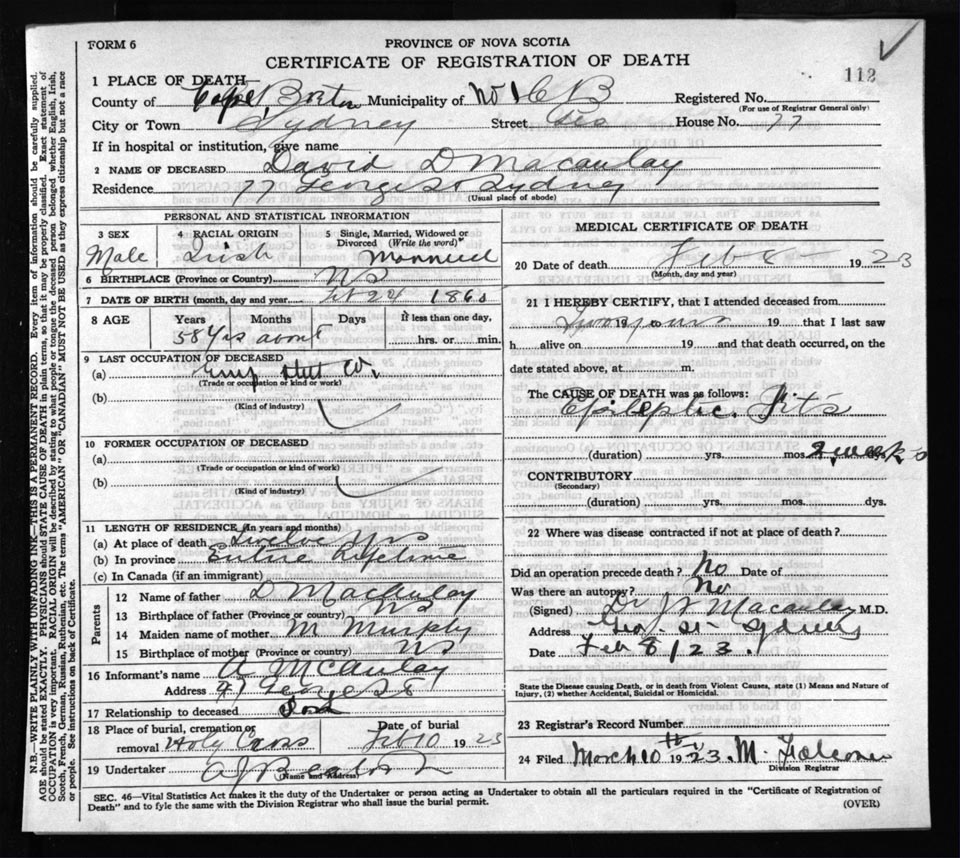 FORM 6
PROVINCE OF NOVA SCOTIA
CERTIFICATE OF REGISTRATION OF DEATH
112
1 PLACE OF DEATH
County of Cape Breton Municipality of No 1 C B Registered No.
(For use of Registrar General only)
City or Town Sydney Street Geo House No. 77
If in hospital or institution, give name
2 NAME OF DECEASED David D Macaulay
Residence 77 George St Sydney
(Usual place of abode)
PERSONAL AND STATISTICAL INFORMATION
3 SEX 4 RACIAL ORIGIN 5 Single, Married, Widowed or Divorced (Write the word)
Male Irish Married
6 BIRTHPLACE (Province or Country) NS
7 DATE OF BIRTH (month, day and year) 24 1860
8 AGE Years Months Days If less than one day,
58 yrs about hrs. or min.
9 LAST OCCUPATION OF DECEASED
(a) Emp
(Trade or occupation or kind or work)
(b)
(Kind of industry)
10 FORMER OCCUPATION OF DECEASED
(a)
(Trade or occupation or kind of work)
(b)
(Kind of industry)
11 LENGTH OF RESIDENCE (In years and months)
(a) At place of death Twelve yrs
(b) In province Entire Lifetime
(c) In Canada (if an immigrant)
Parents
12 Name of father D Macaulay
13 Birthplace of father (Province or country) NS
14 Maiden name of mother M Murphy
15 Birthplace of mother (Province or country) NS
16 Informant's name A McAulay
Address George St
17 Relationship to deceased Son
18 Place of burial, cremation or removal Holy Cross Date of burial Feb 10 1923
19 Undertaker A J Beaton
(Name and Address)
MEDICAL CERTIFICATE OF DEATH
20 Date of death Feb 8 1923
(Month, day and year)
21 I HEREBY CERTIFY, that I attended deceased from
Two years 19 to 19 that I last saw
h alive on 19 and that death occurred, on the
date stated above, at m.
The CAUSE OF DEATH was as follows:
Epileptic Fits
(duration) yrs. mos. 2 weeks dys.
CONTRIBUTORY
(Secondary)
(duration) yrs. mos. dys.
22 Where was disease contracted if not at place of death?
Did an operation precede death? No Date of
Was there an autopsy? No
(Signed) Dr Macaulay M.D.
Address Geo. St Sydney
Date Feb 8/23.
State the Disease causing Death, or in death from Violent Causes, state (1) Means and Nature of Injury, (2) whether Accidental, Suicidal or Homicidal.
23 Registrar's Record Number
24 Filed March 10th 1923. M. Falconer
Division Registrar
SEC. 46—Vital Statistics Act makes it the duty of the Undertaker or person acting as Undertaker to obtain all the particulars required in the "Certificate of Registration of
Death" and to fyle the same with the Division Registrar who shall issue the burial permit.
(OVER)
N.B.—WRITE PLAINLY WITH UNFADING INK—THIS IS A PERMANENT RECORD. Every item of information should be carefully supplied.
AGE should be stated EXACTLY. PHYSICIANS should STATE CAUSE OF DEATH in plain terms, so that it may be properly classified. Exact statement of
OCCUPATION is very important. RACIAL ORIGIN will be described by stating to what people or tongue the deceased person belonged whether English, Irish,
Scotch, French, German, Russian, Ruthenian, etc. The terms "AMERICAN" OR "CANADIAN" MUST NOT BE USED as they express citizenship but not a race
or people. See instructions on back of Certificate.